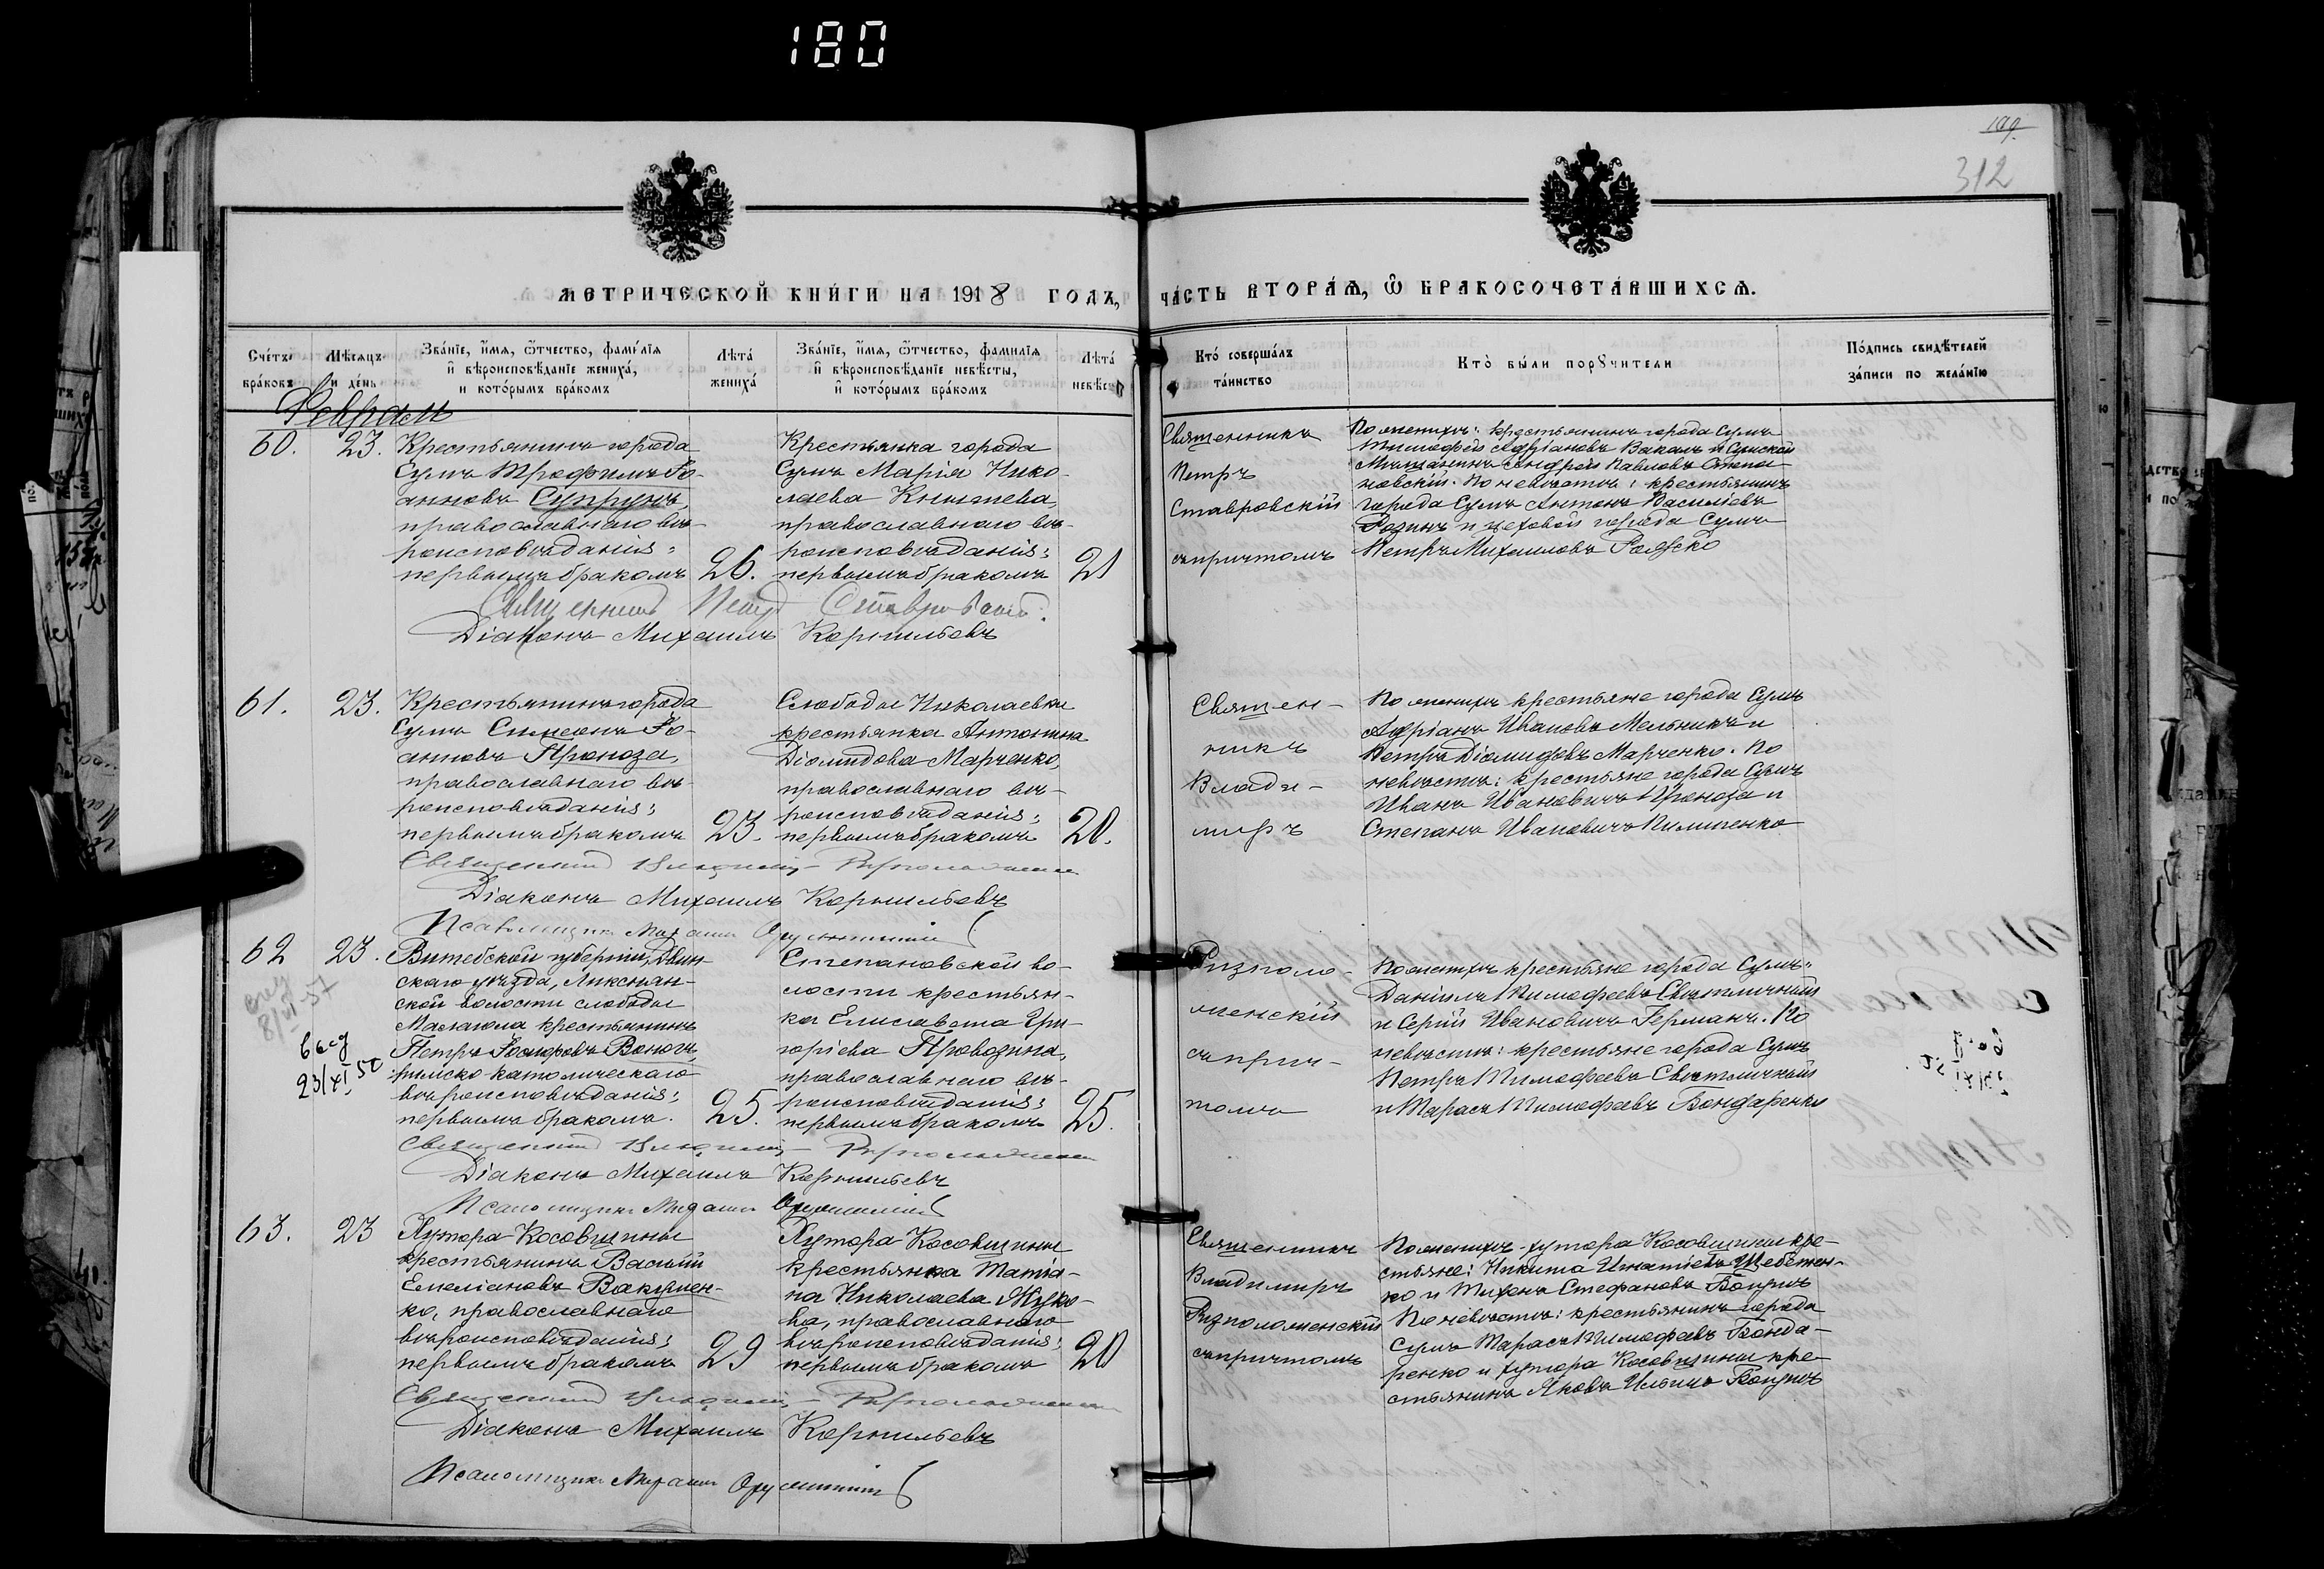 180
109.
312
МЕТРИЧЕСКОЙ КНИ́ГИ НА 1918 ГОДЪ,
ЧА́СТЬ ВТОРА́Ѧ, Ѿ БРАКОСОЧЕТА́ВШИХСѦ.
Сче́тъ бра́ковъ
Мѣ́сѧцъ и де́нь
Зва́нїе, и҆́мѧ, ѻ҆́тчество, фами́лїѧ и҆ вѣроисповѣ́данїе жениха́, и кото́рымъ бра́комъ
Лѣ́та жениха́
Зва́нїе, и҆́мѧ, ѻ҆́тчество, фами́лїѧ и҆ вѣроисповѣ́данїе невѣ́сты, и҆ кото́рымъ бра́комъ
Лѣ́та невѣ́сты
Кто̀ соверша́лъ та́инство
Кто̀ бы́ли порꙋчи́тели
По́дпись свидѣ́телей за́писи по жела́нїю
Февраль
60.
23.
Крестьянинъ города
Сумъ Трофимъ Іо-
анновъ Супрунъ,
православнаго вѣ-
роисповѣданія;
первымъ бракомъ
26.
Крестьянка города
Сумъ Марія Нико-
лаева Книшева,
православнаго вѣ-
роисповѣданія;
первымъ бракомъ
21
Священникъ
Петръ
Ставровскій
съ причтомъ
По женихѣ: крестьянинъ города Сумъ
Тимофей Адріановъ Вакалъ и Сумской
мѣщанинъ Андрей Павловъ Степа-
новскій. По невѣстѣ: крестьянинъ
города Сумъ Антонъ Василіевъ
Розинъ и цеховой города Сумъ
Петръ Михаиловъ
Священникъ Петръ Ставровскій.
Діаконъ Михаилъ Корнильевъ
61.
23.
Крестьянинъ города
Сумъ Симеонъ Іо-
анновъ Проноза,
православнаго вѣ-
роисповѣданія;
первымъ бракомъ
23.
Слободы Николаевки
крестьянка Антонина
Діомидова Марченко,
православнаго вѣ-
роисповѣданія;
первымъ бракомъ
20.
Священ-
никъ
Влади-
миръ
По женихѣ крестьяне города Сумъ
Адріанъ Ивановъ Мельникъ и
Петръ Діомидовъ Марченко. По
невѣстѣ: крестьяне города Сумъ
Иванъ Ивановичъ Проноза и
Степанъ Ивановичъ Пилипенко
Священникъ Владиміръ Ризположенскій
Діаконъ Михаилъ Корнильевъ
Псаломщикъ Михаилъ
62
23.
Витебской губерніи, Двин-
скаго уѣзда, Ликснян-
ской волости слободы
крестьянинъ
Петръ Іосифовъ
римско-католическаго
вѣроисповѣданія;
первымъ бракомъ.
25.
Степановской во-
лости крестьян-
ка Елисавета Гри-
горіева Провозина,
православнаго вѣ-
роисповѣданія;
первымъ бракомъ
25.
Ризполо-
женскій
съ прич-
томъ
По женихѣ крестьяне города Сумъ:
Даніилъ Тимофеевъ Свѣтличный
и Сергій Ивановичъ Германъ. По
невѣстѣ: крестьяне города Сумъ
Петръ Тимофеевъ Свѣтличный
и Тарасъ Тимофеевъ Бондаренко
8/VI-57
23/XI 50
Священникъ Владиміръ Ризположенскій
Діаконъ Михаилъ Корнильевъ
Псаломщикъ Михаилъ
63.
23
Хутора Косовщины
крестьянинъ Василій
Емеліановъ Вакумен-
ко, православнаго
вѣроисповѣданія;
первымъ бракомъ
29
Хутора Косовщины
крестьянка Татіа-
на Николаева Жуко-
ва, православнаго
вѣроисповѣданія;
первымъ бракомъ
20
Священникъ
Владимиръ
Ризположенскій
съ причтомъ
По женихѣ хутора Косовщины кре-
стьяне: Никита Игнатіевъ Щебетен-
ко и Тихонъ Стефановъ
По невѣстѣ: крестьянинъ города
Сумъ Тарасъ Тимофеевъ Бонда-
ренко и хутора Косовщины кре-
стьянинъ Яковъ Ильичъ
Священникъ Владиміръ Ризположенскій
Діаконъ Михаилъ Корнильевъ
Псаломщикъ Михаилъ